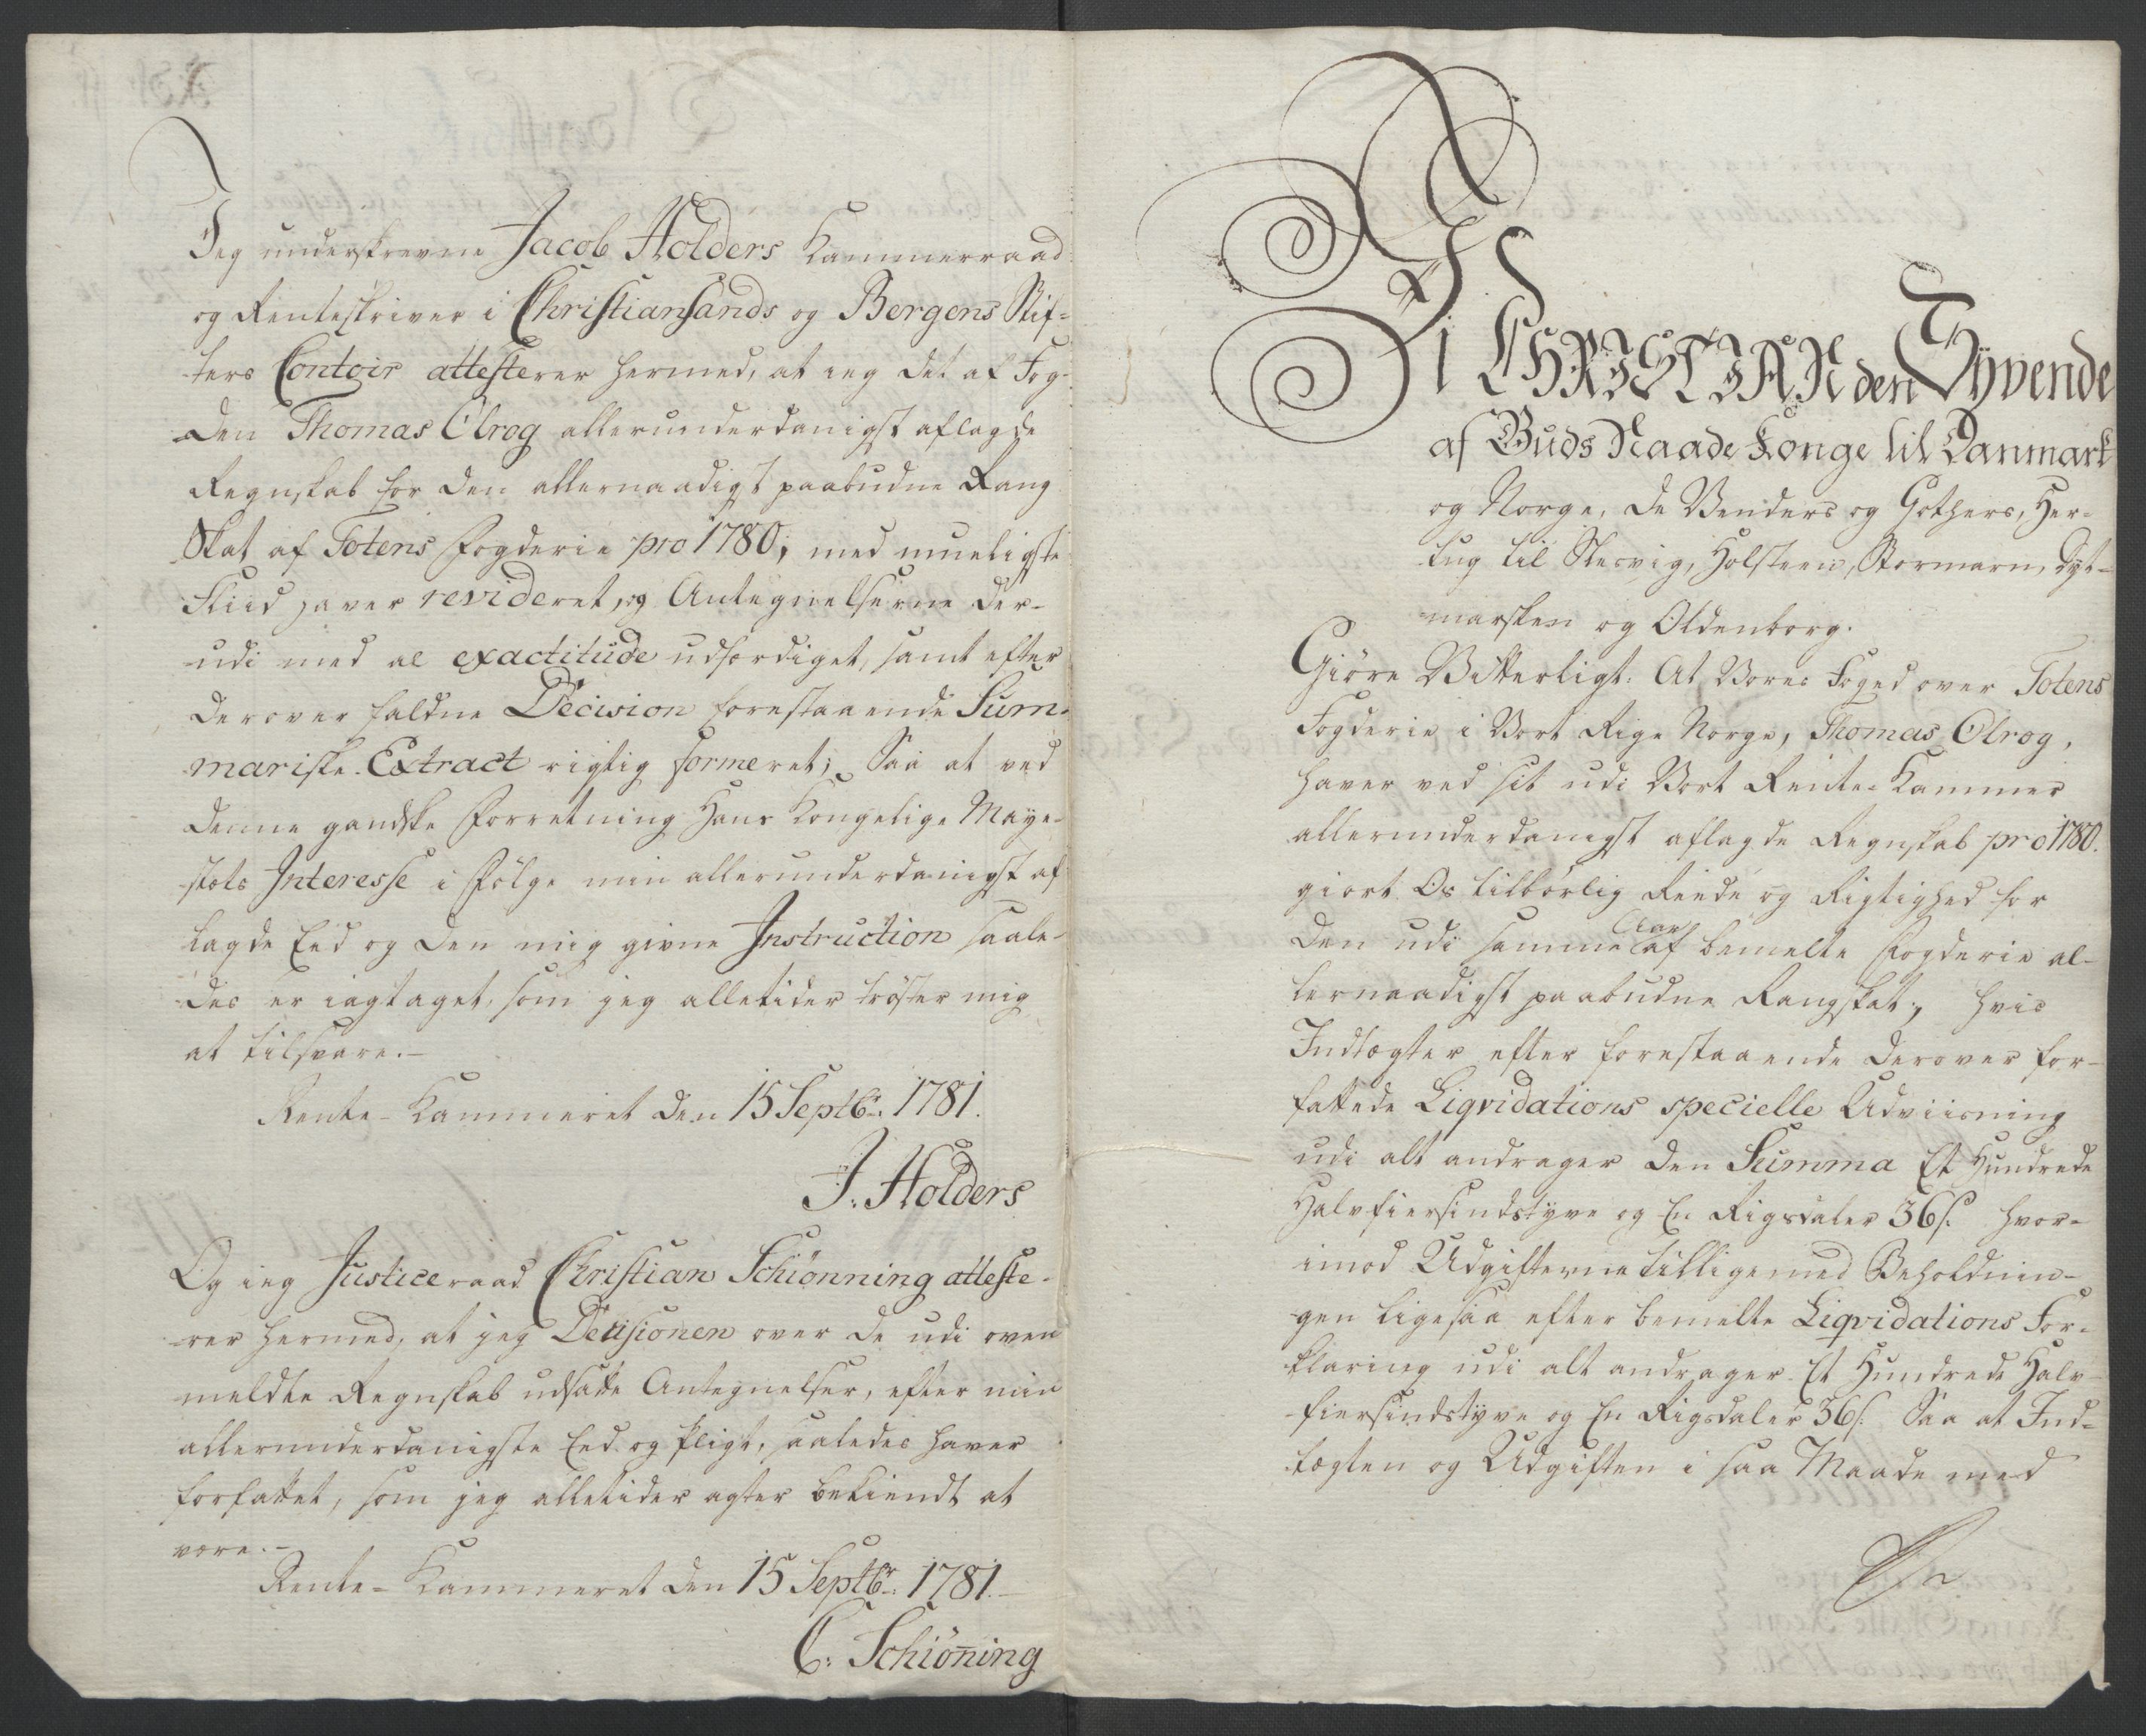 Jeg underskrevne Jacob Holders Kammerraad
og Renteskriver i Christiansands og Bergens Stif-
ters Contoir attesterer hermed, at ieg det af Fog-
den Thomas Olrog allerunderdanigst aflagde
Regnskab for den allernaadigst paabudne Rang
Skat af Totens Fogderie pro 1780, med mueligste
Fliid haver revideret, og Antegnelserne der-
udi med al exactitude udfærdiget, samt efter
derover faldne Decision forestaaende Sum-
mariske Extract rigtig formeret; Saa at ved
denne gandske Forretning Hans Kongelige Maye-
stæts Interesse i Følge min allerunderdanigst af
lagde Eed og den mig givne Instruction saale-
des er iagtaget, som jeg alletider trøster mig
at tilsvare.-
Rente-Kammeret den 15 Septbr: 1781.
J. Holders
Og ieg Justiceraad Christian Schiönning atteste-
rer hermed, at jeg Decisionen over de udi oven
meldte Regnskab udsatte Antegnelser, efter min
allerunderdanigste Eed og Pligt, saaledes haver
forfattet, som jeg alletider agter bekiendt at
være.-
Rente-Kammeret den 15 Septbr: 1781.-
C: Schiöning
Vi CHRISTIAN den Syvende
af Guds Naade Konge til Danmark
og Norge, de Venders og Gothers, Her-
tug til Slesvig, Holsteen, Stormarn, Dyt-
marsken og Oldenborg.
Giöre Vitterligt: At Vores Foged over Totens
Fogderie i Vort Rige Norge, Thomas Olrog,
haver ved sit udi Vort Rente-Kammer
allerunderdanigst aflagde Regnskab pro 1780.
giort Os tilbørlig Reede og Rigtighed for
den udi samme Aar af bemelte Fogderie al-
lernaadigst paabudne Rangskat; hvis
Indtægter efter forestaaende derover for-
fattede Liqvidations specielle Udviisning
udi alt andrager den Summa Et Hundrede
Halvfiersindstyve og En Rigsdaler 36 s. hvor-
imod Udgifterne tilligemed Beholdnin-
gen ligesaa efter bemelte Liqvidations For-
klaring udi alt andrager Et Hundrede Halv-
fiersindstyve og En Rigsdaler 36 s. Saa at Ind-
tægten og Udgiften i saa Maade med